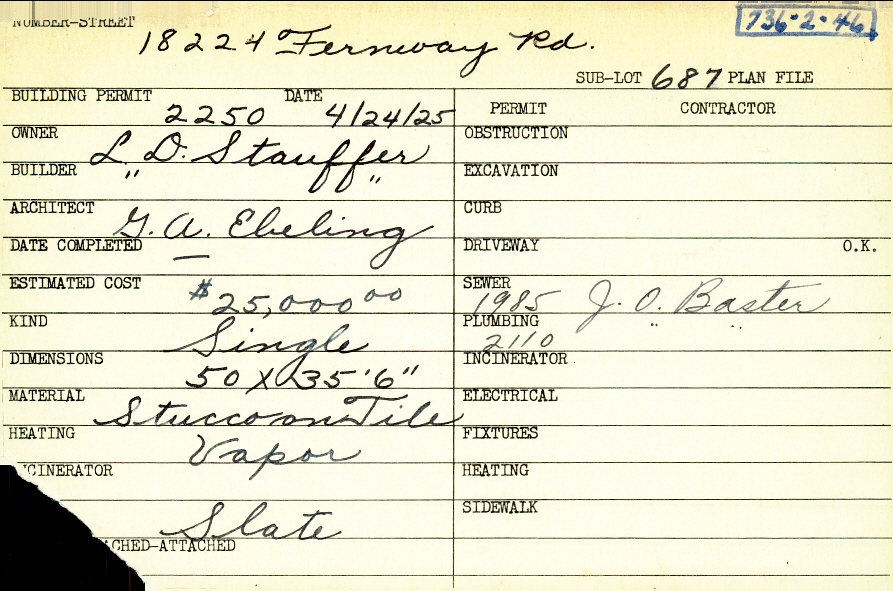 NUMBER-STREET
18224 Fernway Rd.
736-2-46
SUB-LOT 687 PLAN FILE
BUILDING PERMIT 2250 DATE 4/24/25
OWNER L. D. Stauffer
BUILDER " "
ARCHITECT G. A. Ebeling
DATE COMPLETED —
ESTIMATED COST $25,000 00
KIND Single
DIMENSIONS 50 X 35'6"
MATERIAL Stucco on Tile
HEATING Vapor
NCINERATOR
Slate
ACHED-ATTACHED
PERMIT CONTRACTOR
OBSTRUCTION
EXCAVATION
CURB
DRIVEWAY O.K.
SEWER 1985 J. O. Baster
PLUMBING 2110 " "
INCINERATOR
ELECTRICAL
FIXTURES
HEATING
SIDEWALK